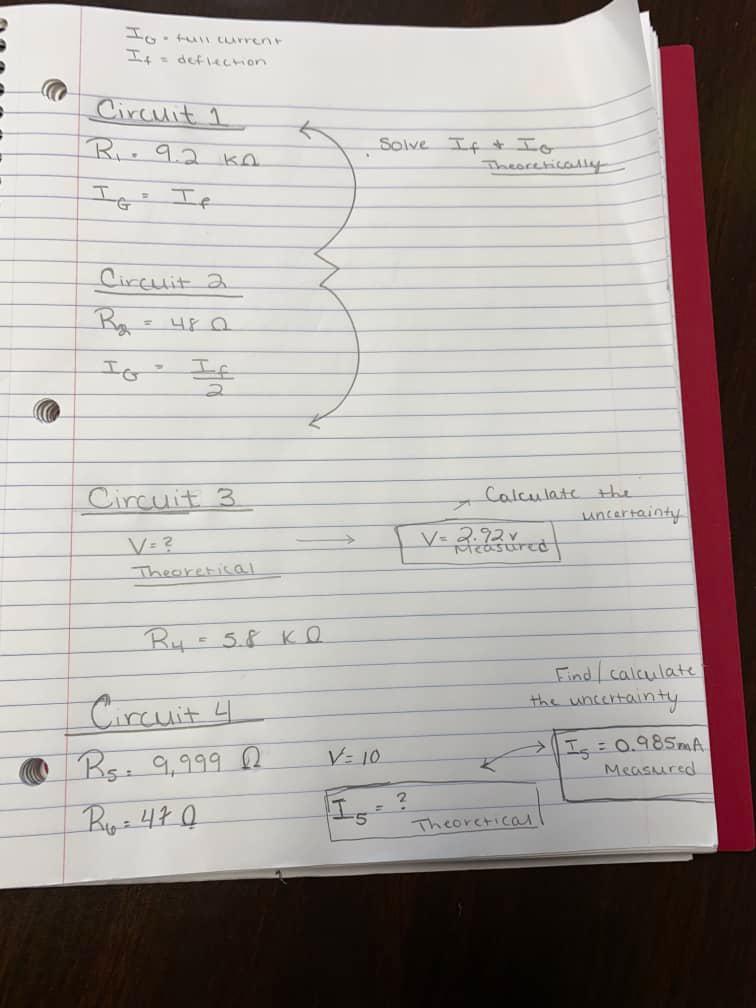 IG = full current
If = deflection
Circuit 1
R1 = 9.2 kΩ
IG = If
. Solve If + IG
Theoretically
Circuit 2
R2 = 48 Ω
IG = If
2
Circuit 3
→ Calculate the
uncertainty
V=? → V= 2.92v
Measured
Theoretical
R4 = 5.8 KΩ
Find/calculate
the uncertainty
Circuit 4
R5 = 9,999 Ω V=10
I5 = 0.985mA
Measured
R6 = 47 Ω
I5 = ?
Theoretical